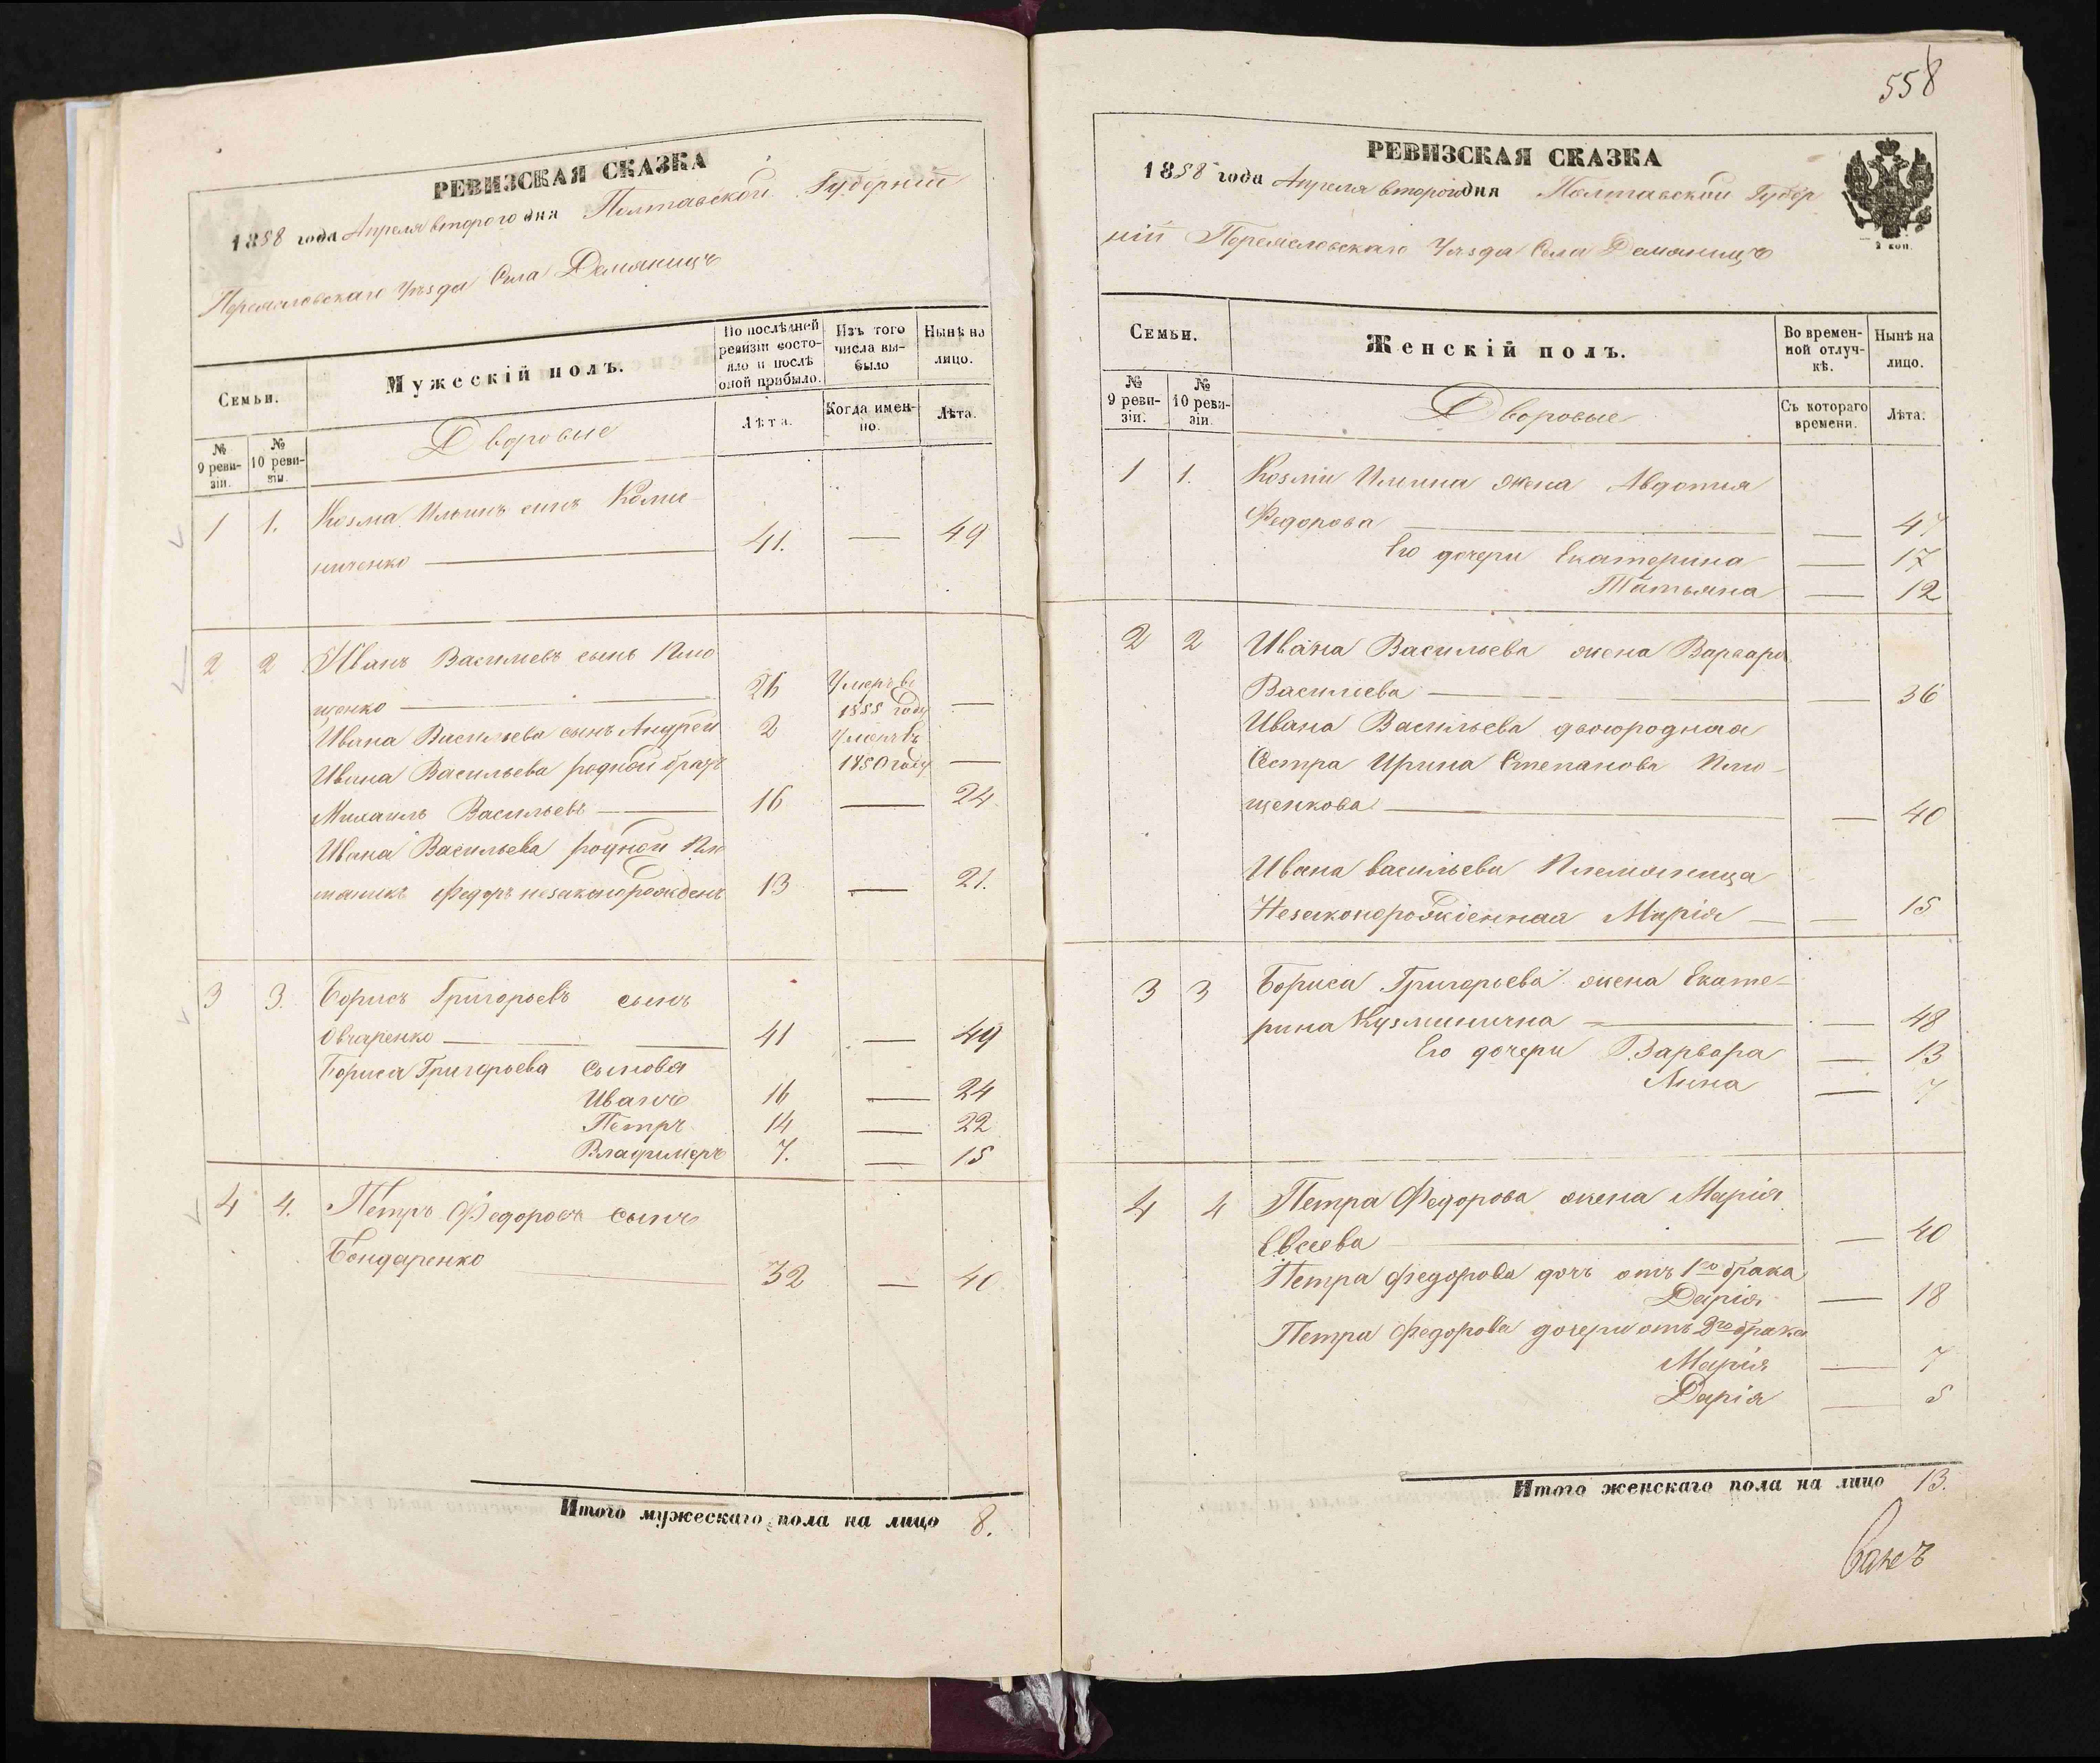 РЕВИЗСКАЯ СКАЗКА
1858 года Апреля второго дня Полтавской Губерний
Переяславскаго Уѣзда Села Демяницъ
Семьи.
Мужескій полъ.
По послѣдней ревизіи состояло и послѣ оной прибыло.
Изъ того числа выбыло
Нынѣ на лицо.
№ 9 ревизіи.
№ 10 ревизіи.
Дворовые
Лѣта.
Когда именно.
Лѣта.
1 1. Козма Ильинъ сынъ
ниченко 41. — 49
2 2 Иванъ Васильевъ сынъ Плю
щенко 26 Умеръ въ 1855 году —
Ивана Васильева сынъ Андрей 2 Умеръ въ 1850 году —
Ивана Васильева родной братъ
Михаилъ Васильевъ 16 — 24
Ивана Васильева родной Пле
маникъ Федоръ незаконорожденъ 13 — 21.
3 3. Борисъ Григорьевъ сынъ
Овчаренко 41 — 49
Бориса Григорьева сынова
Иванъ 16 — 24
Петръ 14 — 22
Владимеръ 7. — 15
4 4. Петръ Федоровъ сынъ
Бондаренко 32 — 40
Итого мужескаго пола на лицо 8.
558
РЕВИЗСКАЯ СКАЗКА
1858 года Апреля второго дня Полтавской Губер
ній Переяславскаго Уѣзда Села Демяницъ
2 коп.
Семьи.
Женскій полъ.
Во временной отлучкѣ.
Нынѣ на лицо.
№ 9 ревизіи.
№ 10 ревизіи.
Дворовые
Съ котораго времени.
Лѣта.
1 1. Козми Илиина жена Авдотия
Федорова — 47
Его дочери Екатерина — 17
Татьяна — 12
2 2 Ивана Васильева жена Варвара
Василиева — 36
Ивана Васильева двоюродная
Сестра Ирина Степанова Плю-
щенкова — 40
Ивана васильева Племяница
Незаконорожденная Марія — 15
3 3 Бориса Григорьева жена Екате-
рина Кузминична — 48
Его дочери Варвара — 13
Анна — 7
4 4 Петра Федорова жена Марія
Евсеева — 40
Петра Федорова дочь отъ 1го брака
Дарія — 18
Петра Федорова дочери отъ 2го брака
Марія — 7
Дарія — 5
Итого женскаго пола на лицо 13.